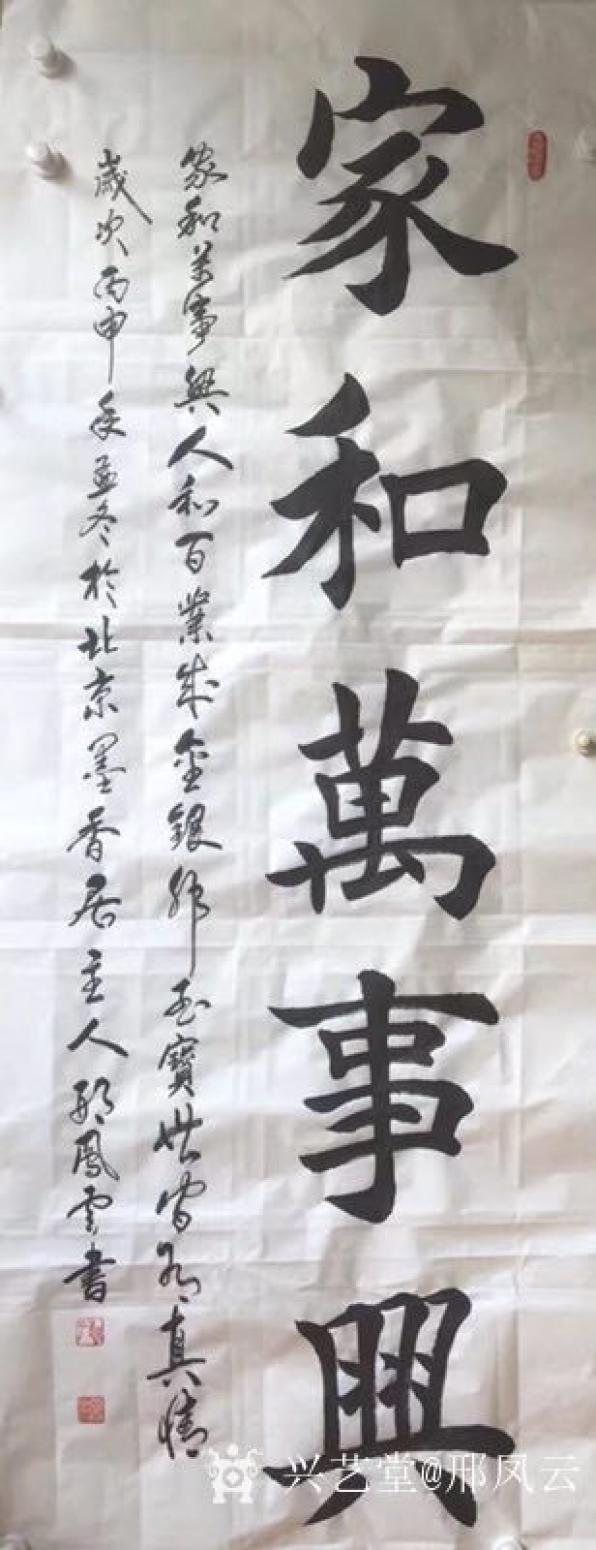 家和萬事興
家和萬事興人和百業成金銀非至寶世真情
歲次丙申年孟冬於北京墨香居主人邢鳳雲書
兴艺堂@邢凤云